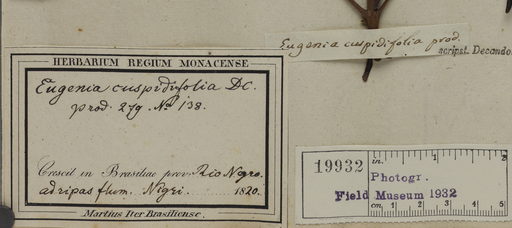 HERBARIUM REGIUM MONACENSE
Eugenia cuspidifolia DC.
prod. 279. No 138.
Crescit in Brasiliae prov. Rio Negro.
ad ripas flum. Nigri. 1820.
Martius Iter Brasiliense.
Eugenia cuspidifolia prod.
scripst. Decandol
19932
in. 1 2
Photogr.
Field Museum 1932
cm. 1 2 3 4 5